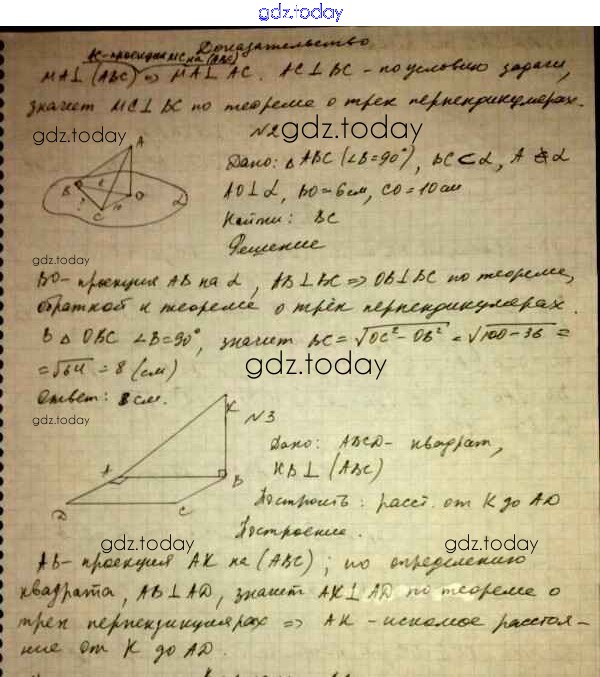 gdz.today
Доказательство
MA⊥(ABC) => MA⊥AC. AC⊥BC - по условию задачи,
значит MC⊥BC по теореме о трех перпендикулярах.
gdz.today
gdz.today
N2
A
B
O
C
α
Дано: △ABC (∠B=90°), BC⊂α, A∉α
gdz.today
AO⊥α, BO=6см, CO=10см
Найти: BC
Решение
gdz.today
BO - проекция AB на α, AB⊥BC => OB⊥BC по теореме,
обратной к теореме о трёх перпендикулярах.
В △OBC ∠B=90°, значит BC=√OC²-OB² = √100-36 =
=√64 = 8 (см)
gdz.today
Ответ: 8 см.
gdz.today
K
A
B
C
D
N3
Дано: ABCD - квадрат,
KB⊥(ABC)
Построить: расст. от K до AD
Построение.
gdz.today
gdz.today
AB - проекция AK на (ABC); по определению
квадрата, AB⊥AD, значит AK⊥AD по теореме о
gdz.today
трех перпендикулярах => AK - искомое расстоя-
ние от K до AD.
gdz.today
gdz.today